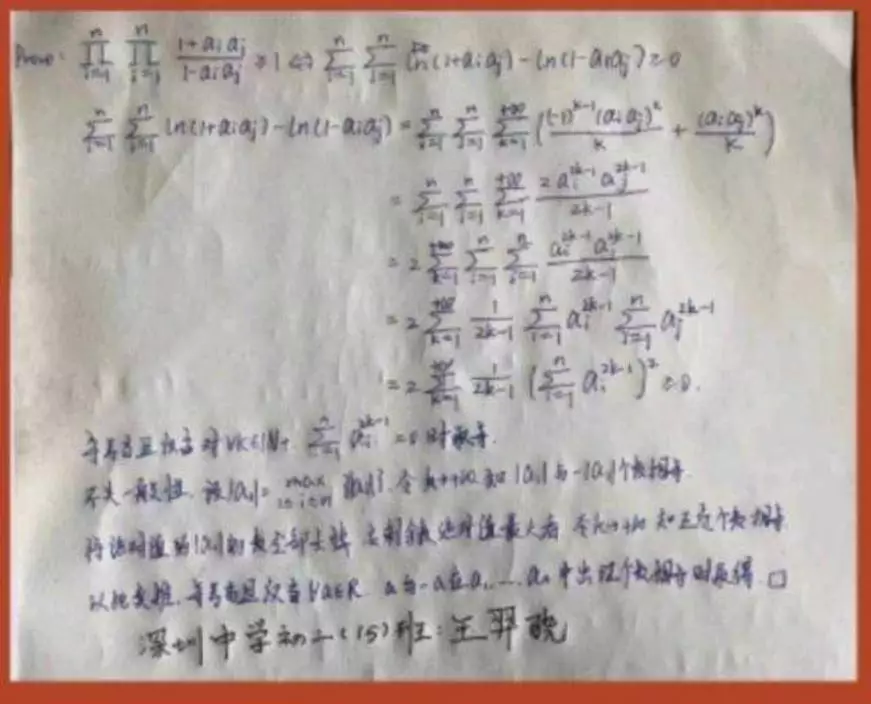 Prove: ∏_{i=1}^{n} ∏_{j=1}^{n} \frac{1+a_i a_j}{1-a_i a_j} ≥ 1 ⇔ ∑_{i=1}^{n} ∑_{j=1}^{n} ln(1+a_i a_j) - ln(1-a_i a_j) ≥ 0
∑_{i=1}^{n} ∑_{j=1}^{n} ln(1+a_i a_j) - ln(1-a_i a_j) = ∑_{i=1}^{n} ∑_{j=1}^{n} ∑_{k=1}^{+∞} ( \frac{(-1)^{k-1}(a_i a_j)^k}{k} + \frac{(a_i a_j)^k}{k} )
= ∑_{i=1}^{n} ∑_{j=1}^{n} ∑_{k=1}^{+∞} \frac{2 a_i^{2k-1} a_j^{2k-1}}{2k-1}
= 2 ∑_{k=1}^{+∞} ∑_{i=1}^{n} ∑_{j=1}^{n} \frac{a_i^{2k-1} a_j^{2k-1}}{2k-1}
= 2 ∑_{k=1}^{+∞} \frac{1}{2k-1} ∑_{i=1}^{n} a_i^{2k-1} ∑_{j=1}^{n} a_j^{2k-1}
= 2 ∑_{k=1}^{+∞} \frac{1}{2k-1} (∑_{i=1}^{n} a_i^{2k-1})^2 ≥ 0.
等号当且仅当对∀k∈N+, ∑_{i=1}^{n} a_i^{2k-1} = 0时取等.
不失一般性, 设|a_1| = max_{1≤i≤n} {|a_i|}. 令k→+∞知|a_1|与-|a_1|个数相等.
将绝对值为|a_1|的数全部去掉, 绝对值最大者 令k→+∞知正负个数相等
以此类推, 等号当且仅当∀a∈R, a与-a在a_1, ..., a_n中出现个数相等时取得. □
深圳中学初二(15)班: 王羿皓